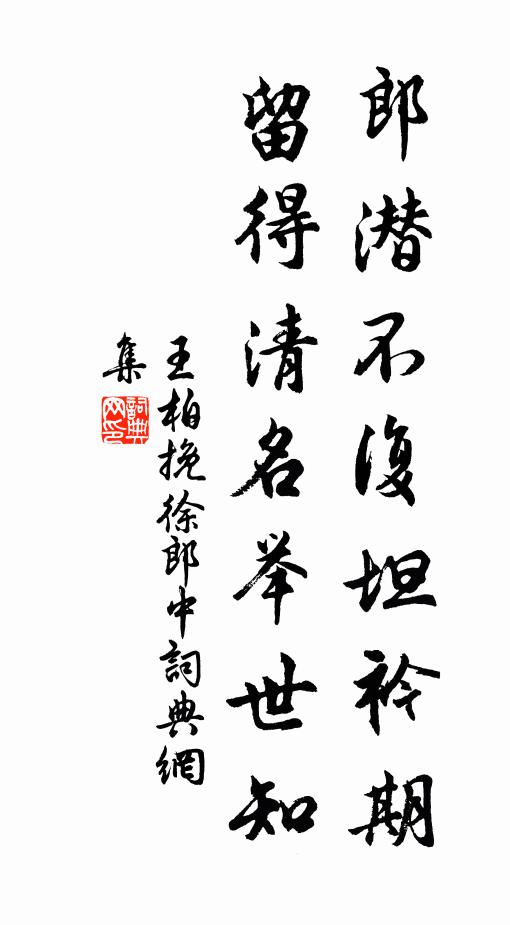 郎潜不復坦衿期
留得清名举世知
王柏挽徐郎中詞典網
集
詞典网印